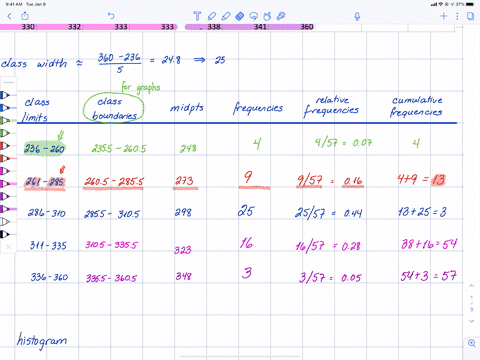 9:41 AM Tue Jan 8
330 332 333 333 338 341 360
class width ≈ 360 - 236 / 5 = 24.8 ⇒ 25
for graphs
class limits class boundaries midpts frequencies relative frequencies cumulative frequencies
236 - 260 235.5 - 260.5 248 4 4/57 = 0.07 4
261 - 285 260.5 - 285.5 273 9 9/57 = 0.16 4+9 = 13
286 - 310 285.5 - 310.5 298 25 25/57 = 0.44 13+25 = 3
311 - 335 310.5 - 335.5 323 16 16/57 = 0.28 38+16 = 54
336 - 360 335.5 - 360.5 348 3 3/57 = 0.05 54+3 = 57
histogram